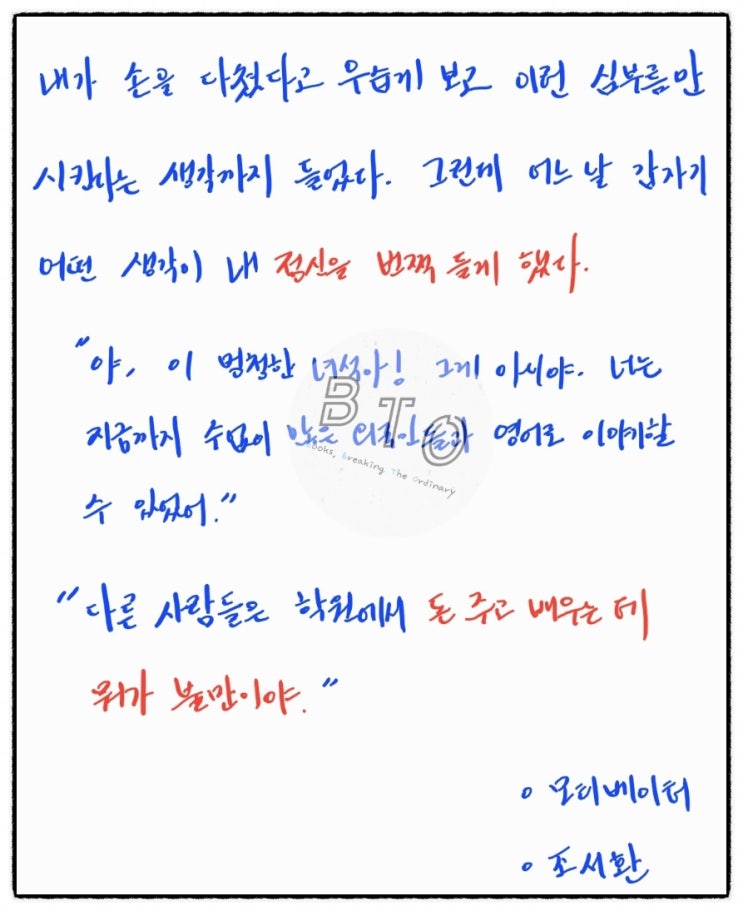 내가 손을 다쳤다고 우습게 보고 이런 심부름만
시킨다는 생각까지 들었다. 그런데 어느 날 갑자기
어떤 생각이 내 정신을 번쩍 들게 했다.
"야, 이 멍청한 녀석아! 그게 아니야. 너는
지금까지 수없이 많은 외국인들과 영어로 이야기할
수 있었어."
BTO
Books, Breaking The Ordinary
"다른 사람들은 학원에서 돈 주고 배우는데
뭐가 불만이야."
• 모티베이터
• 조서환